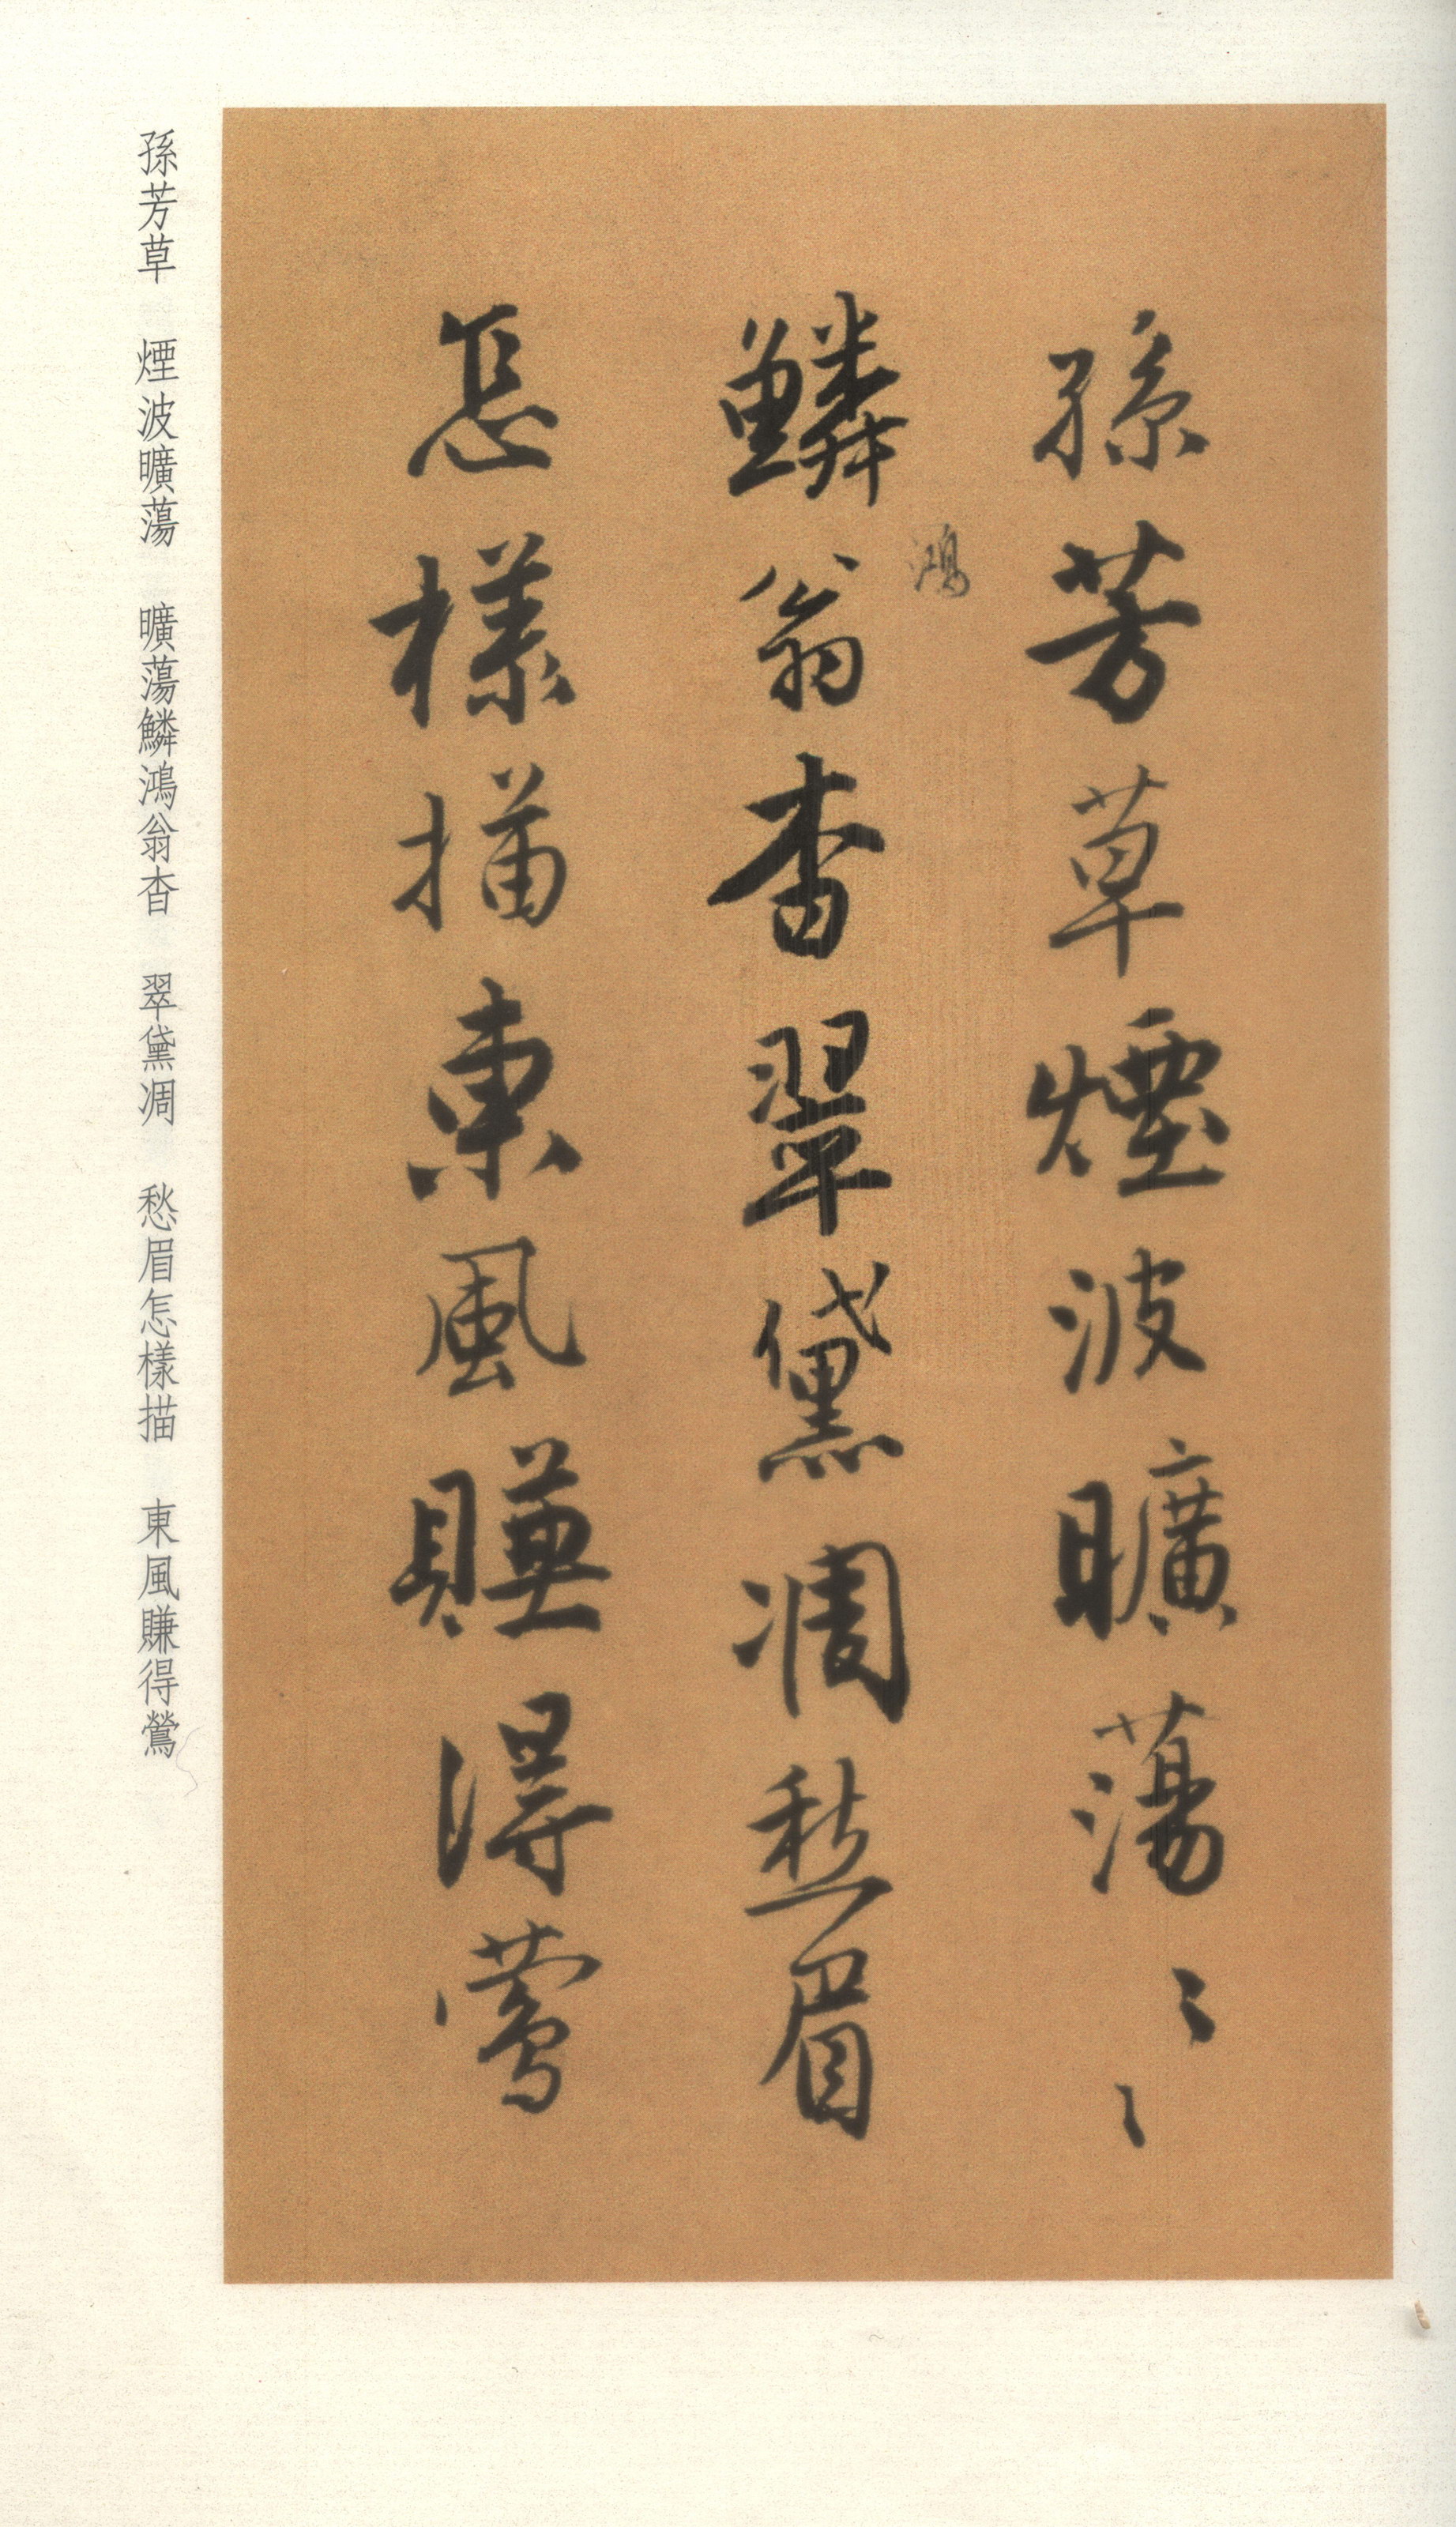 孫芳草煙波曠蕩〻〻
鱗翁杳翠黛凋愁眉
鴻
怎樣描東風賺得鶯
孫芳草 煙波曠蕩 曠蕩鱗鴻翁杳 翠黛凋 愁眉怎樣描 東風賺得鶯